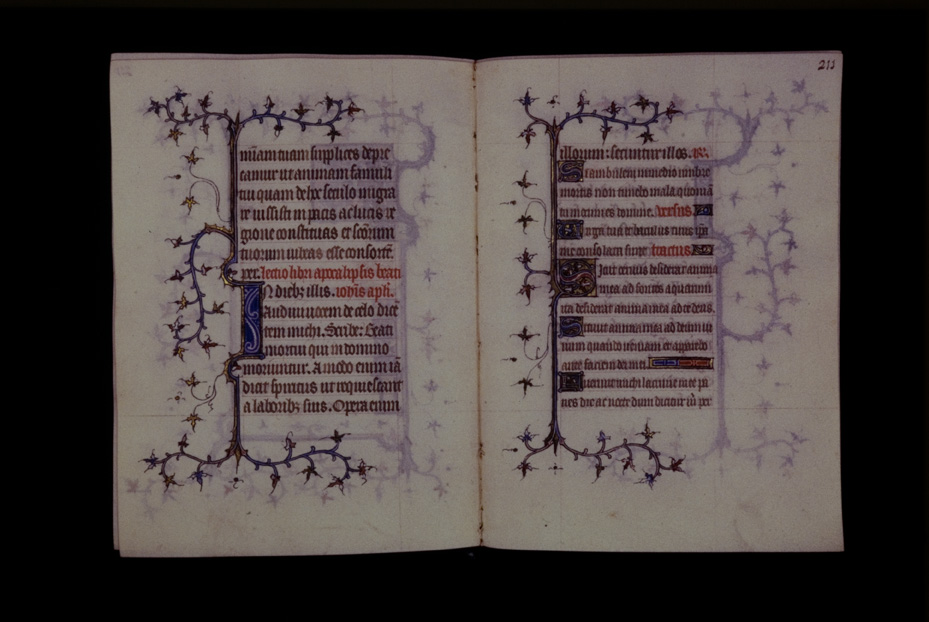 niam tuam supplices depre
camur ut animam famuli
tui quam de hoc seculo migra
re iussisti in pacis ac lucis re
gione constituas et scōrum
tuorum iubeas esse consortē.
per. lectio libri apocalipsis beati
IN diebꝫ illis. iohīs apli.
Audiui uocem de celo dicē
tem michi. Scribe: Beati
mortui qui in domino
moriuntur. Amodo enim iā
dicit spiritus ut requiescant
a laboribꝫ suis. Opera enim
211
illorum: secuntur illos.
Si ambulem in medio umbre
mortis non timebo mala quoniā
tu mecum es domine. versus
Uirga tua et baculus tuus ipa
me consolata sunt. tractus
Sicut ceruus desiderat
ad fontes aquarum
ita desiderat anima mea ad te deus.
Sitiuit anima mea ad deum ui
uum quando ueniam et apparebo
ante faciem dei mei
Fuerunt michi lacrime mee pa
nes die ac nocte dum dicitur m̄ per